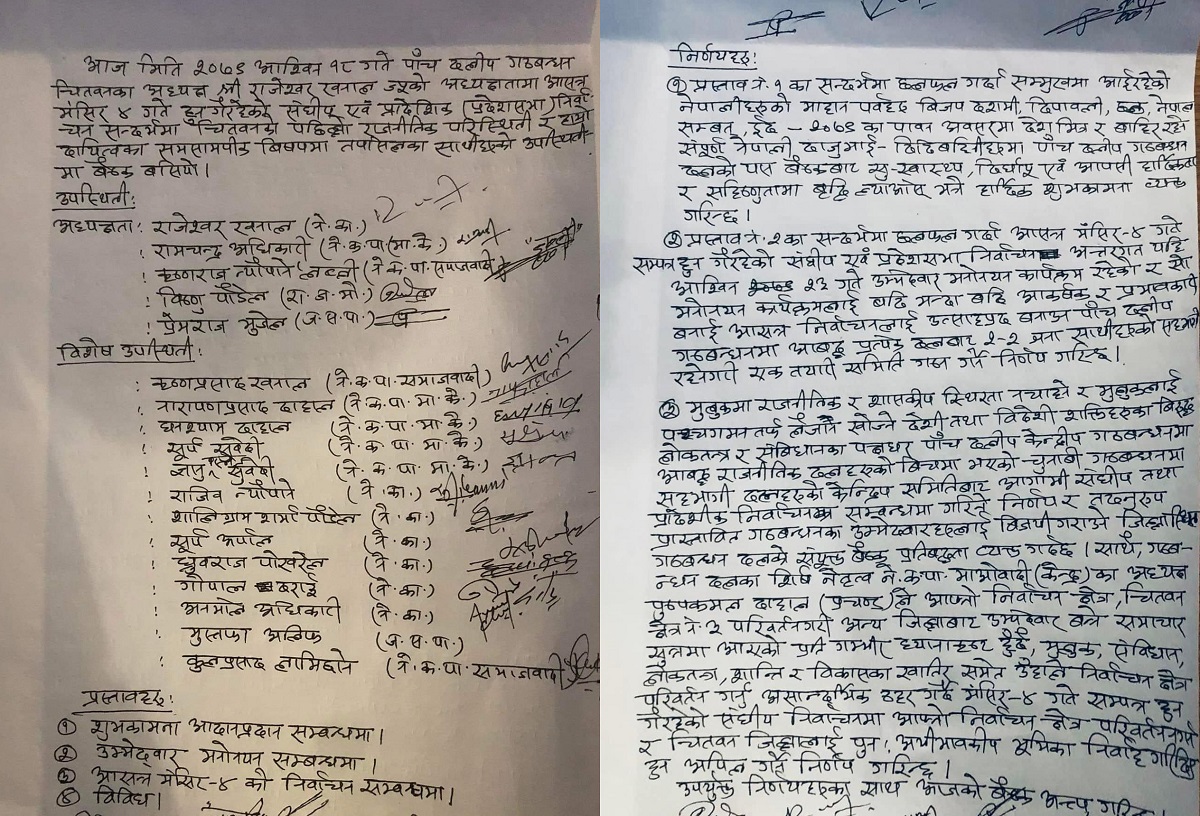 आज मिति २०७९ आश्विन १८ गते पाँच दलीय गठबन्धन
चितवनका अध्यक्ष श्री राजेश्वर खनाल ज्यूको अध्यक्षतामा आसन्न
मंसिर ४ गते हुन गैरहेको संघीय एवं प्रादेशिक (प्रदेशसभा) निर्वा-
चन सन्दर्भमा चितवनका पछिल्लो राजनीतिक परिस्थिती र हाम्रा
दायित्वका समसामयीक विषयमा तपसिलका साथीहरुको उपस्थिती-
मा बैठक बसियो।
उपस्थिती:
अध्यक्षता: राजेश्वर खनाल (ने.का.)
: रामचन्द्र अधिकारी (ने.क.पा.मा.के)
: कृष्णराज न्यौपाने (ने.क.पा.समाजवादी)
: विष्णु पौडेल (रा.ज.मो.)
: प्रेमराज मुडेल (ज.स.पा.)
विशेष उपस्थिती:
: कृष्णप्रसाद खनाल (ने.क.पा.समाजवादी)
: नारायणप्रसाद दाहाल (ने.क.पा.मा.के.)
: घनश्याम दाहाल (ने.क.पा.मा.के.)
: सूर्य सुवेदी (ने.क.पा.मा.के.)
: सुवेदी (ने.क.पा.मा.के.)
: राजिव न्यौपाने (ने.का.)
: शालिग्राम शर्मा पौडेल (ने.का.)
: सूर्य अर्याल (ने.का.)
: ध्रुवराज पोखरेल (ने.का.)
: गोपाल दराई (ने.का.)
: अनमोल अधिकारी (ने.का.)
: मुस्तफा अलिफ (ज.स.पा.)
: कुलप्रसाद लामिछाने (ने.क.पा.समाजवादी)
प्रस्तावहरु:
① शुभकामना आदानप्रदान सम्बन्धमा।
② उम्मेदवार मनोनयन सम्बन्धमा।
③ आसन्न मंसिर-४ को निर्वाचन सम्बन्धमा।
④ विविध।
निर्णयहरु:
① प्रस्ताव नं. १ का सन्दर्भमा छलफल गर्दा सम्मुखमा आईरहेको
नेपालीहरुको माहान पर्वहरु विजय दशमी, दिपावली, छठ, नेपाल
सम्बत, ईद - २०७९ का पावन अवसरमा देश भित्र र बाहिर रहने
संपूर्ण नेपाली दाजुभाई-दिदिबहिनीहरुमा पाँच दलीय गठबन्धन
दलको यस बैठकबाट सु-स्वास्थ्य, दिर्घायू एवं आपसी हार्दिकता
र सहिष्णुतामा बृद्धि ल्याओस् भन्ने हार्दिक शुभकामना व्यक्त
गरिन्छ।
② प्रस्ताव नं. २ का सन्दर्भमा छलफल गर्दा आसन्न मंसिर-४ गते
सम्पन्न हुन गैरहेको संघीय एवं प्रदेशसभा निर्वाचन अन्तरगत यहि
आश्विन २३ गते उम्मेदवार मनोनयन कार्यक्रम रहेको र सो
मनोनयन कार्यक्रमलाई बढि भन्दा बढि आकर्षक र प्रभावकारी
बनाई आसन्न निर्वाचनलाई उत्साहप्रद बनाउन पाँच दलीय
गठबन्धनमा आबद्ध प्रत्येक दलबाट २-२ जना साथीहरुको सहभागी
रहनेगरी एक तयारी समिति गठन गर्ने निर्णय गरिन्छ।
③ मुलुकमा राजनीतिक र शासकीय स्थिरता नचाहने र मुलुकलाई
पश्चगमन तर्फ लैजान खोज्ने देशी तथा विदेशी शक्तिहरुका बिरुद्ध
लोकतन्त्र र संविधानका पक्षधर पाँच दलीय केन्द्रीय गठबन्धनमा
आबद्ध राजनीतिक दलहरुको बिचमा भएको चुनावी गठबन्धनमा
सहभागी दलहरुको केन्द्रिय समितिबाट आगामी संघीय तथा
प्रादेशीक निर्वाचनका सम्बन्धमा गरिने निर्णय र तदनुरुप
प्रास्तावित गठबन्धनका उम्मेदवारहरुलाई विजयी गराउने जिल्लास्थित
गठबन्धन दलको संयूक्त बैठक प्रतिबद्धता व्यक्त गर्दछ। साथै, गठब-
न्धन दलका शिर्ष नेतृत्व ने.क.पा. माओवादी (केन्द्र) का अध्यक्ष
पुष्पकमल दाहाल (प्रचण्ड) ले आफ्नो निर्वाचन क्षेत्र, चितवन
क्षेत्र नं. ३ परिवर्तनगरी अन्य जिल्लाबाट उम्मेदवार बन्ने समाचार
सुन्नमा आएको प्रती गम्भीर ध्यानाकृष्ट हुँदै, मुलुक, संविधान,
लोकतन्त्र, शान्ति र विकासका खातिर समेत उँहाले निर्वाचन क्षेत्र
परिवर्तन गर्नु असान्दर्भिक ठहर गर्दै मंसिर-४ गते सम्पन्न हुन
गैरहेको संघीय निर्वाचनमा आफ्नो निर्वाचन क्षेत्र परिवर्तन नगर्न
र चितवन जिल्लालाई पुन: अभीभावकीय भूमिका निर्वाह गरिदिन
हुन अपिल गर्ने निर्णय गरिन्छ।
उपर्युक्त निर्णयहरुका साथ आजको बैठक अन्त्य गरिन्छ।